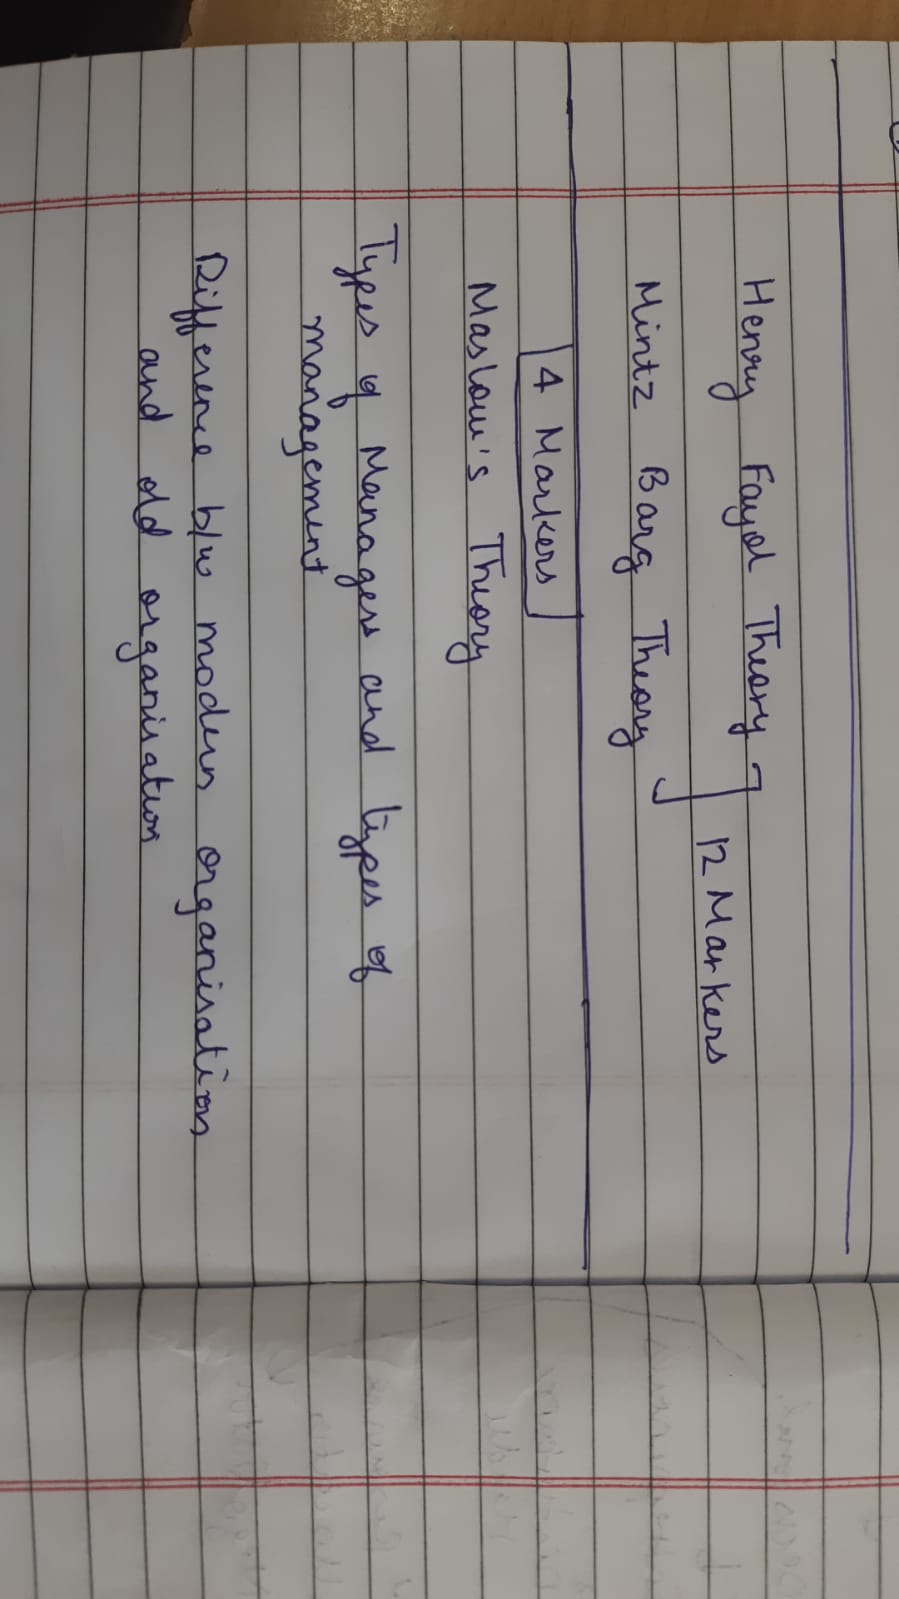 Henry Fayol Theory
Mintz Barg Theory
12 Markers
4 Markers
Maslow's Theory
Types of Managers and types of
management
Difference b/w modern organisation
and old organisation